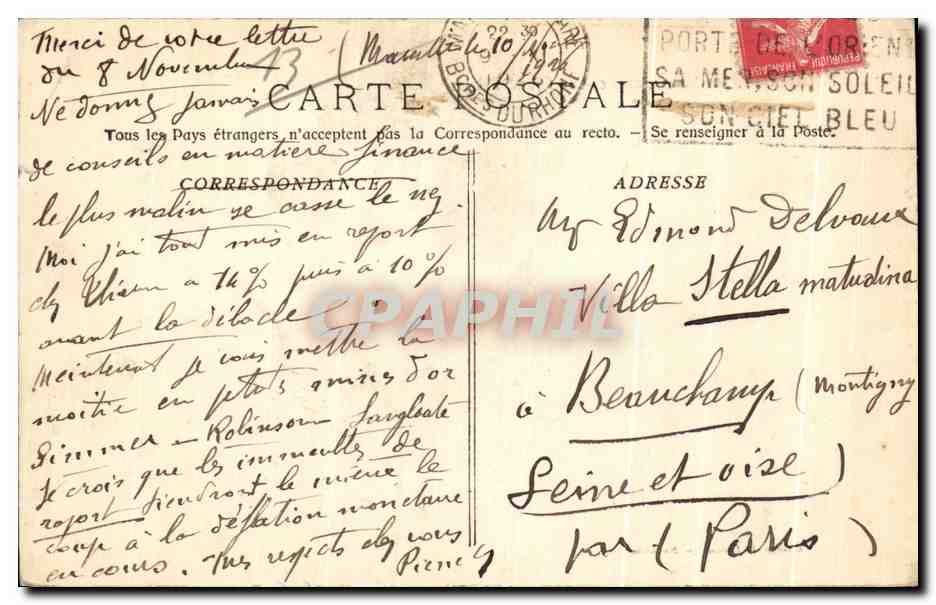 Merci de votre lettre
du 8 Novembre
13
( Marseille 10 Nov
Ne donnez jamais
CARTE POSTALE
Tous les Pays étrangers n'acceptent pas la Correspondance au recto. — Se renseigner à la Poste.
de conseils en matiere finance
CORRESPONDANCE
le plus malin se casse le nez.
Moi j'ai tout mis en report
à 14% puis à 10%
avant la débacle.
Maintenant je vais mettre la
moitié en mines d'or
Simmer Robinson Langlaate
Je crois que les immeubles de
raport le même le
coup à la déflation monetaire
en cours. Mes respects chez vous
Pierre
22 30
BCHES DU RHONE
REPUBLIQUE FRANÇAISE
PORTE DE L'ORIENT
SA MER, SON SOLEIL
SON CIEL BLEU
ADRESSE
Mr Edmond Delvaux
Villa Stella matudina
à Beauchamp (Montigny
Seine et oise )
par (Paris)
CPAPHIL